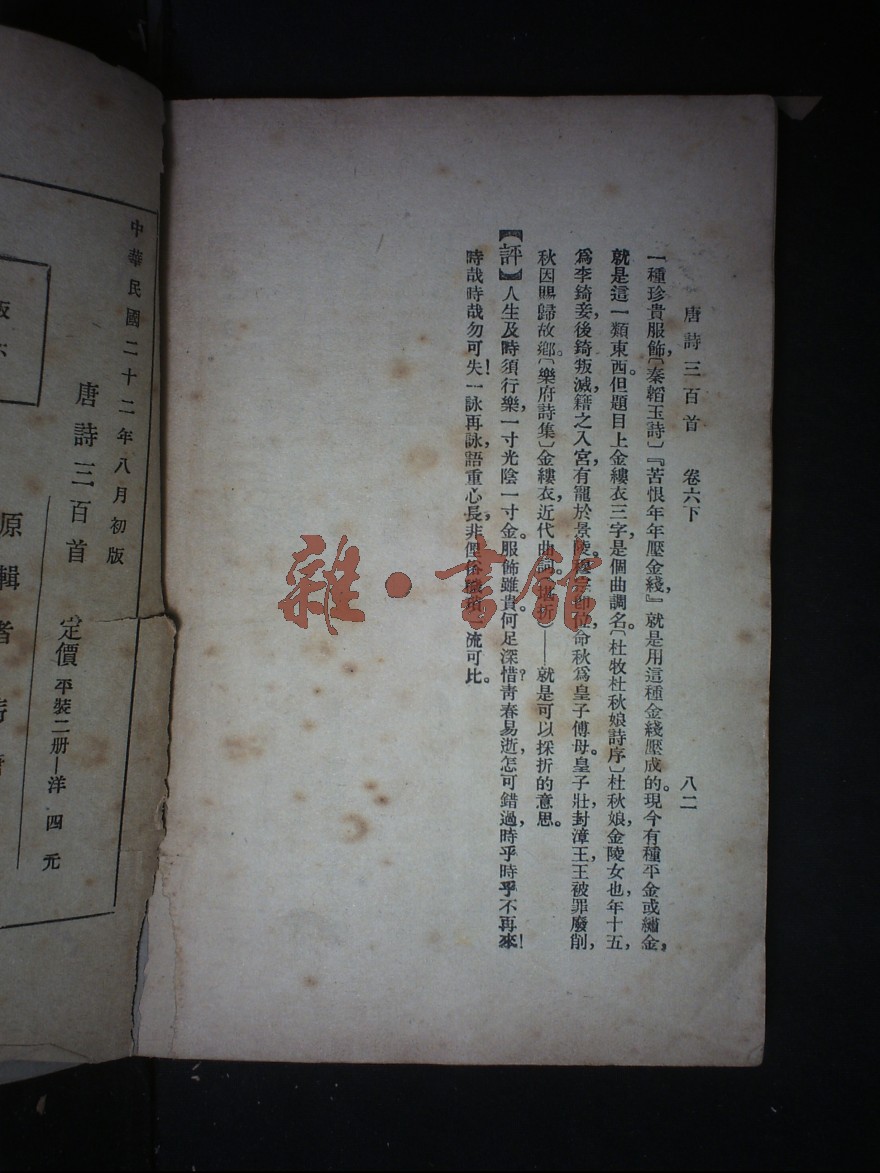 唐詩三百首　卷六下　八二
一種珍貴服飾，〔秦韜玉詩〕『苦恨年年壓金綫，』就是用這種金綫壓成的。現今有種平金或繡金，
就是這一類東西。但題目上金縷衣三字，是個曲調名。〔杜牧杜秋娘詩序〕杜秋娘，金陵女也，年十五，
爲李錡妾，後錡叛滅，籍之入宮，有寵於景陵。穆宗卽位，命秋爲皇子傅母。皇子壯，封漳王，王被罪廢削，
秋因賜歸故鄉。〔樂府詩集〕金縷衣，近代曲詞。堪折——就是可以採折的意思。
【評】人生及時須行樂，一寸光陰一寸金。服飾雖貴，何足深惜？靑春易逝，怎可錯過，時乎時乎不再來！
時哉時哉勿可失！一詠再詠，語重心長，非俚俗一流可比。
中華民國二十二年八月初版
唐詩三百首　定價　平裝二册—洋四元
原輯者
版